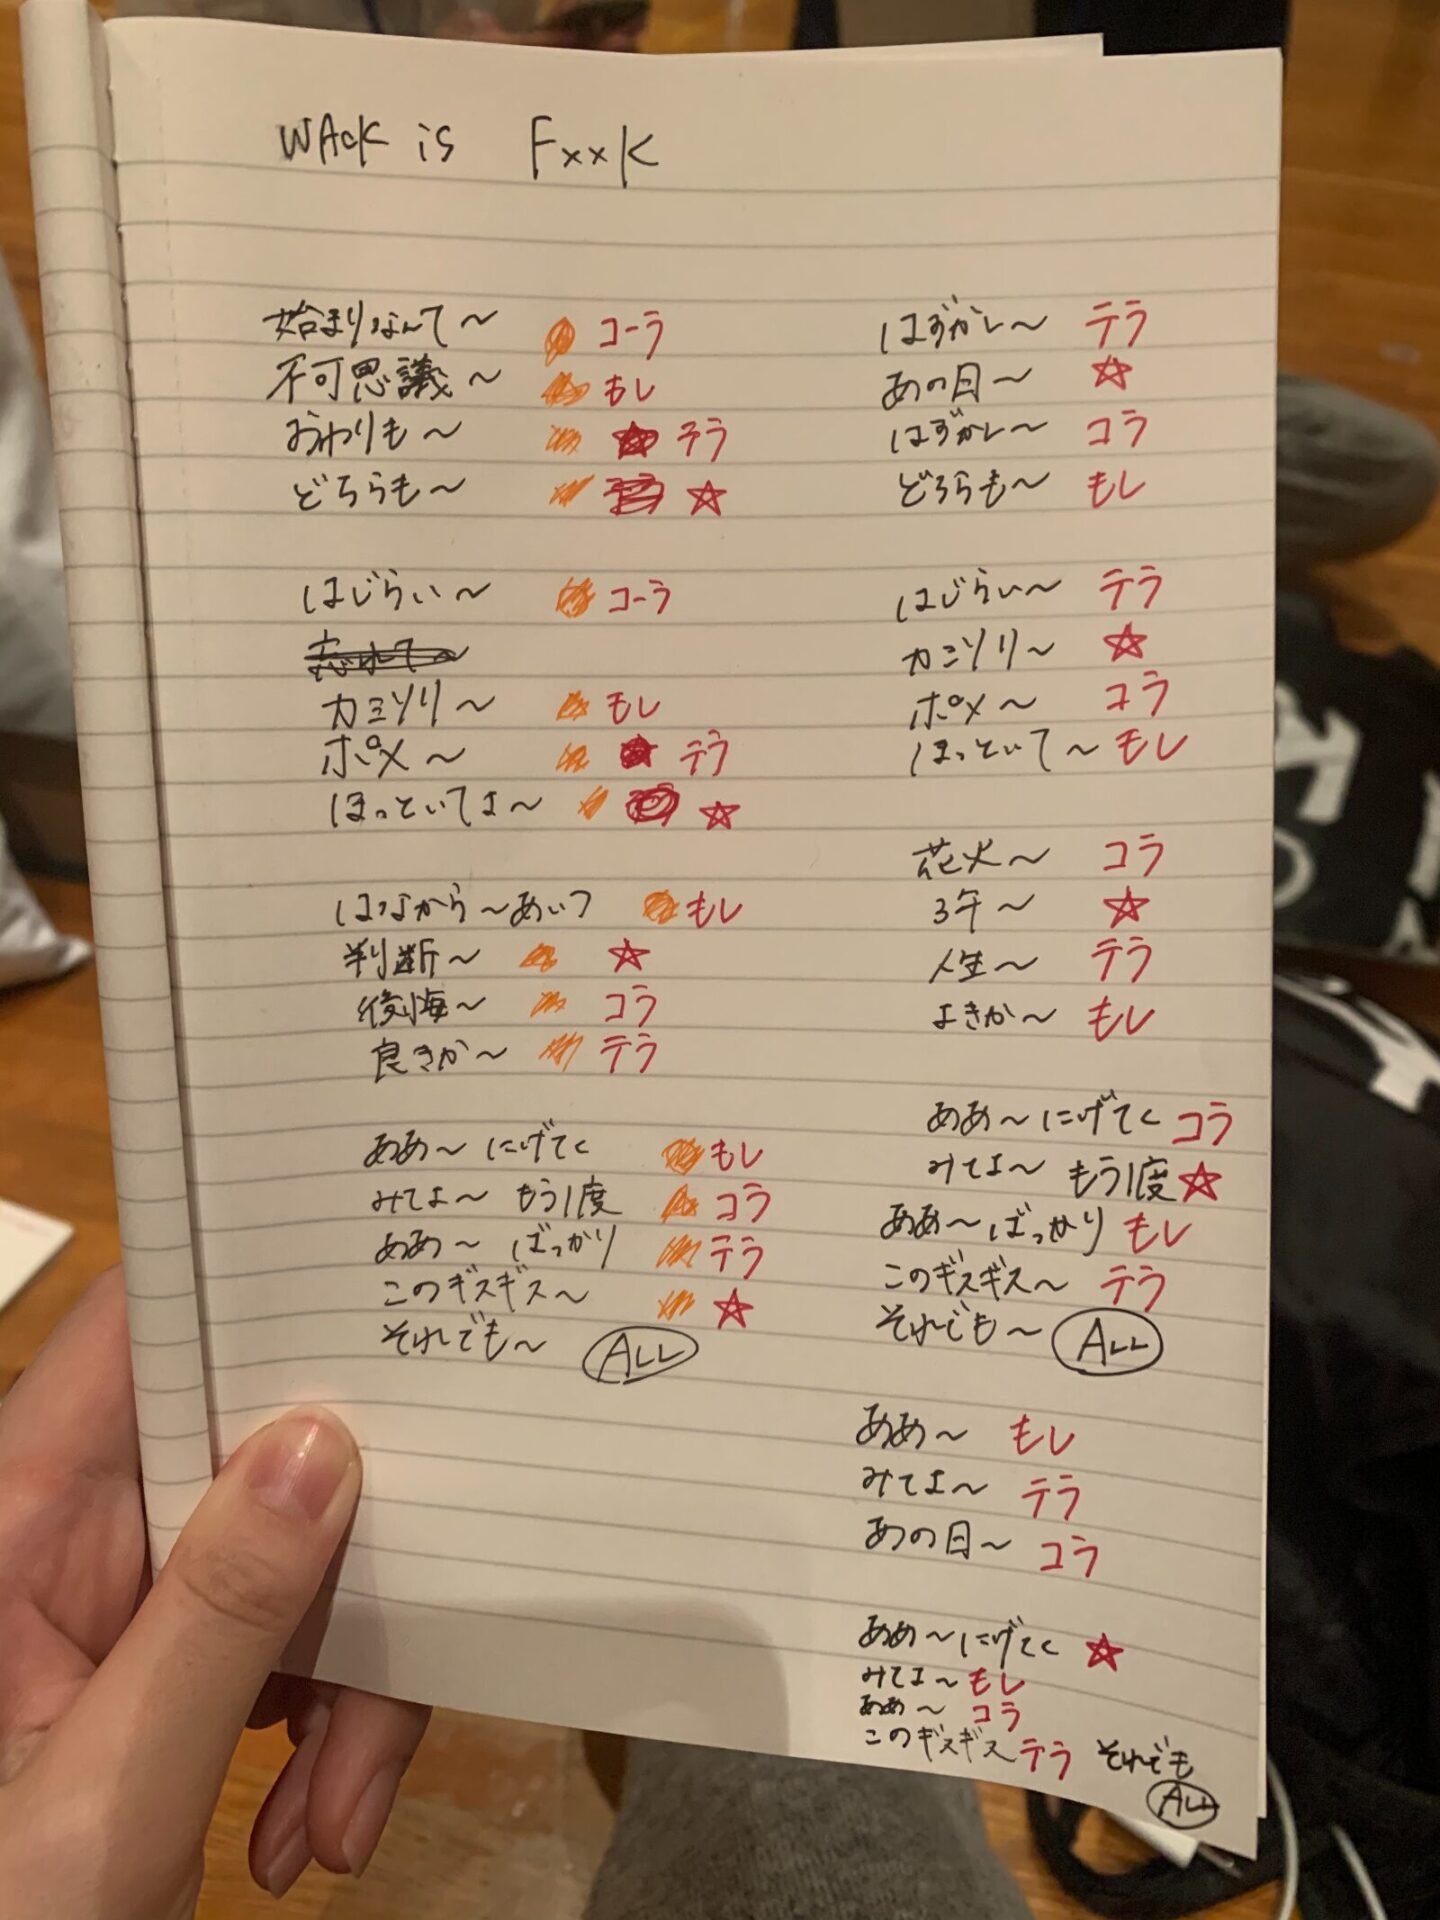 WACK is FxxK
始まりなんて〜 コーラ
不可思議〜 もし
おわりも〜 テラ
どちらも〜 ☆
はじらい〜 コーラ
忘れて〜
カミソリ〜 もし
ポメ〜 テラ
ほっといてよ〜 ☆
はなから〜あいつ もし
判断〜 ☆
後悔〜 コラ
良きか〜 テラ
ああ〜 にげてく もし
みてよ〜 もう1度 コラ
ああ〜 ばっかり テラ
このギスギス〜 ☆
それでも〜 ALL
はずかし〜 テラ
あの日〜 ☆
はずかし〜 コラ
どちらも〜 もし
はじらい〜 テラ
カミソリ〜 ☆
ポメ〜 コラ
ほっといて〜 もし
花火〜 コラ
3年〜 ☆
人生〜 テラ
よきか〜 もし
ああ〜にげてく コラ
みてよ〜 もう1度 ☆
ああ〜ばっかり もし
このギスギス〜 テラ
それでも〜 ALL
ああ〜 もし
みてよ〜 テラ
あの日〜 コラ
ああ〜にげてく ☆
みてよ〜 もし
ああ〜 コラ
このギスギス テラ それでも
ALL